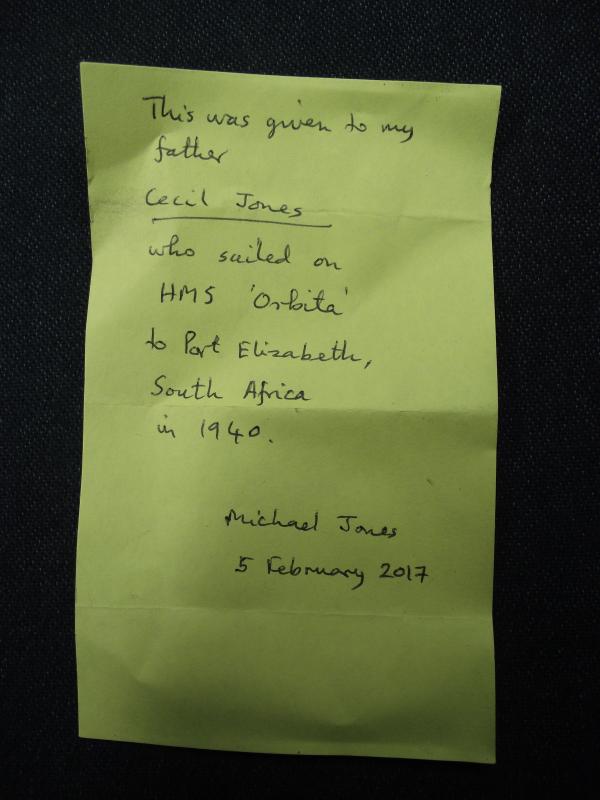 This was given to my
father
Cecil Jones
who sailed on
HMS 'Orbita'
to Port Elizabeth,
South Africa
in 1940.
Michael Jones
5 February 2017